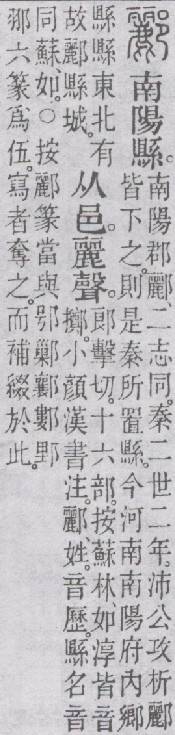 酈南陽縣。南陽郡酈、二志同。秦二世二年。沛公攻析酈
皆下之。則是秦所置縣。今河南南陽府內鄉
縣縣東北有
故酈縣城。
从邑。麗聲。郎擊切。十六部。按蘇林、如淳皆音
擲。小顏漢書注。酈、姓。音歷。縣名。音
同蘇如。○按酈篆當與鄂鄛
六篆爲伍。寫者奪之。而補綴於此。